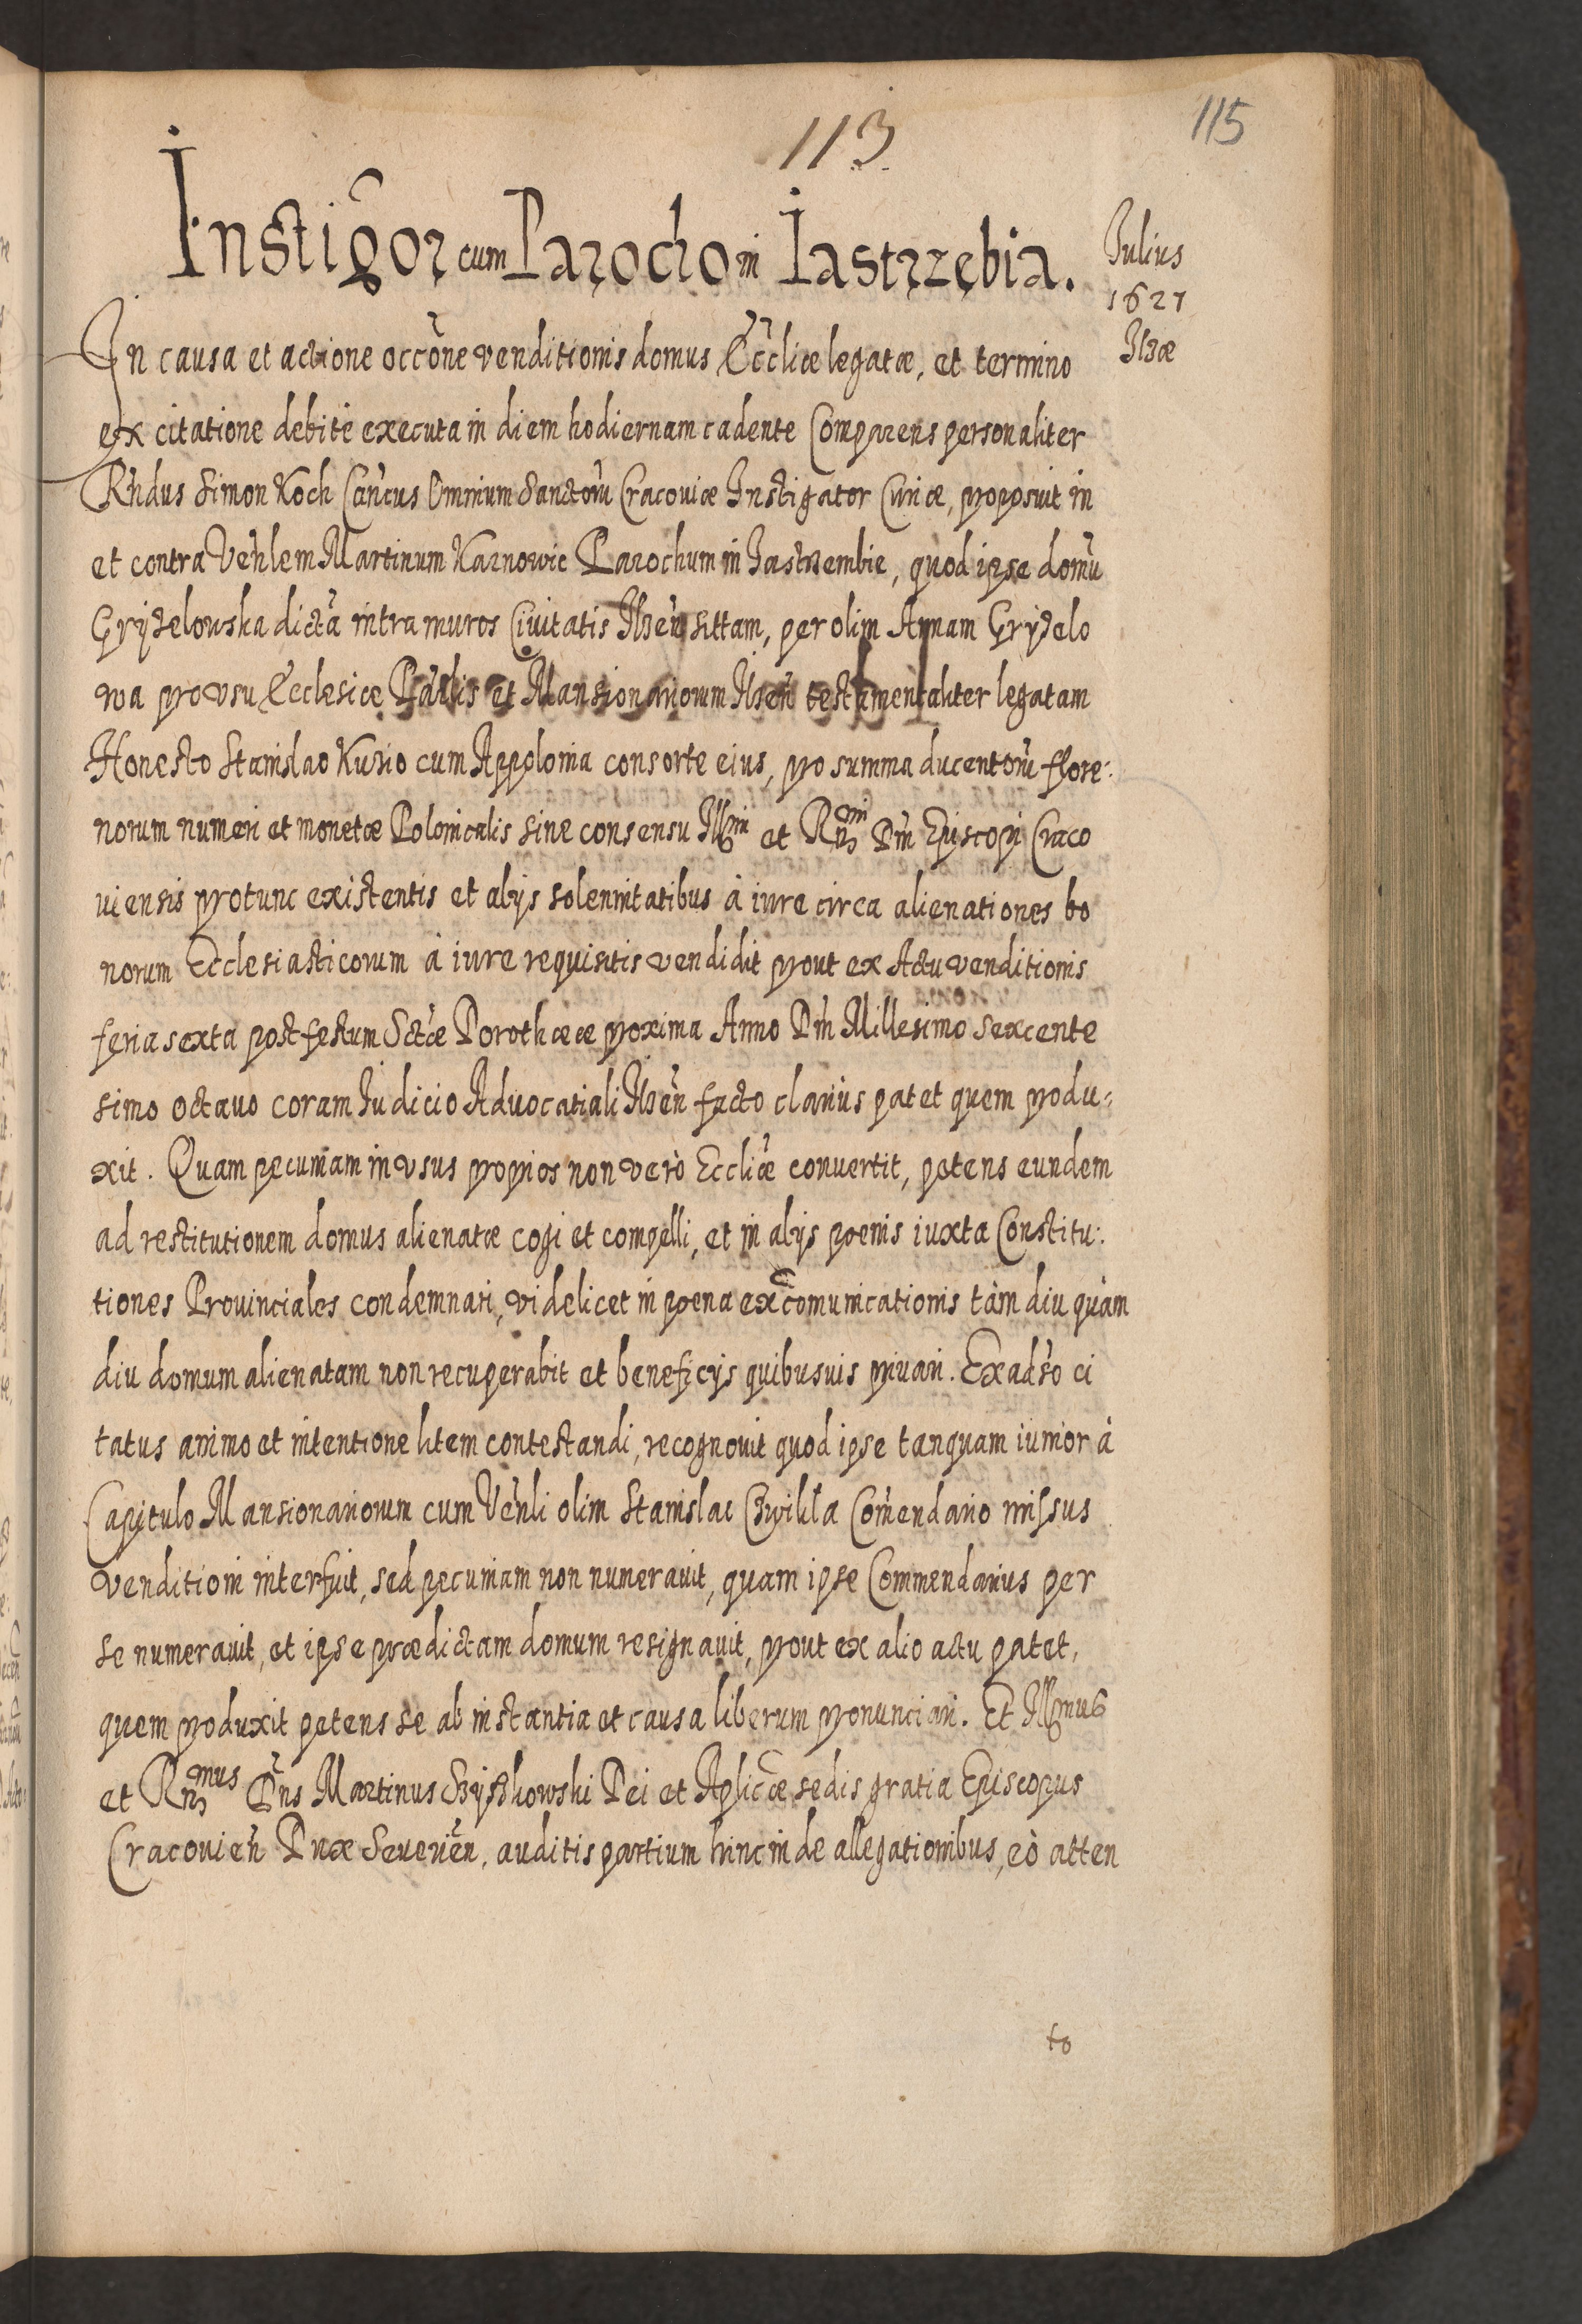 113
115
Instigor cum Parocho in Iastrzębia.
Iulius
1621
Ilzæ
In causa et actione occõne venditionis domus Ecclicæ legatæ, et termino
ex citatione debitè executa in diem hodiernam cadente Comparens personaliter
Rñdus Simon Koch Cañcus Omnium Sanctorũ Cracouiæ Instigator Curiæ, proposuit in
et contra Veñlem Martinum Karnowic Parochum in Jastrzembie, quod ipse domũ
Gryzelowska dictã intra muros Ciuitatis Ilzeñ sittam, per olim Annam Gryzelo
wa pro vsu Ecclesiæ Pãrlis et Mansionariorum Ilzeñ testamentaliter legatam
Honesto Stanislao Kusio cum Appolonia consorte eius, pro summa ducentorũ flore:
norum numeri et monetæ Polonicalis sine consensu Illmi et Rmi Dñi Episcopi Craco
uiensis protunc existentis et alijs solennitatibus à iure circa alienationes bo
norum Ecclesiasticorum à iure requisitis vendidit prout ex Actu venditionis
feria sexta post festum Sctæ Dorotheæ proxima Anno Dñi Millesimo sexcente
simo octauo coram Iudicio Aduocatiali Ilzeñ facto clarius patet quem produ=
xit. Quam pecuniam in vsus proprios non verò Eccliæ conuertit, petens eundem
ad restitutionem domus alienatæ cogi et compelli, et in alijs poenis iuxta Constitu:
tiones Prouinciales condemnari, videlicet in poena excomunicationis tàm diu quàm
diu domum alienatam non recuperabit et beneficijs quibusuis priuari. Ex adso ci
tatus animo et intentione litem contestandi, recognouit quod ipse tanquam iunior à
Capitulo Mansionariorum cum Veñli olim Stanislao Cwikła Comendario missus
venditioni interfuit, sed pecuniam non numerauit, quam ipse Commendarius per
se numerauit, et ipse prædictam domum resignauit, prout ex alio actu patet,
quem produxit petens se ab instantia et causa liberum pronunciari. Et Illmus
et Rmus Dñs Martinus Szyszkowski Dei et Aplicæ sedis gratia Episcopus
Cracouieñ Dux Seuerieñ. auditis partium hinc inde allegationibus, eò atten
to